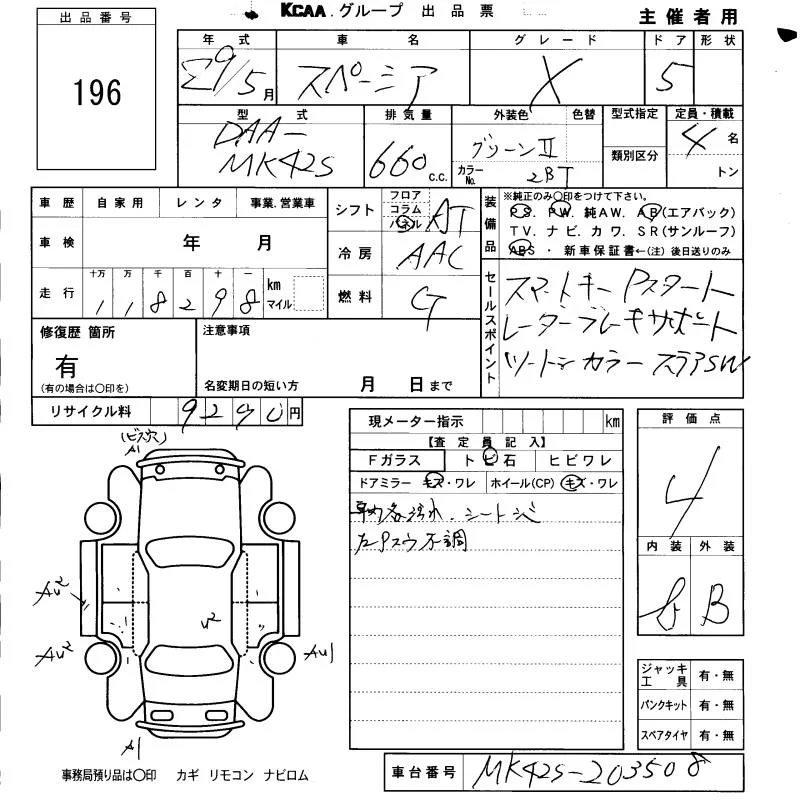 KCAA.グループ 出品票
主催者用
出品番号
196
年式 車名 グレード ドア 形状
29/5月 スペーシア X 5
型式 排気量 外装色 色替 型式指定 定員・積載
DAA-
MK42S 660 c.c. グリーンⅡ カラーNo. ZBT 類別区分 4名
トン
車歴 自家用 レンタ 事業.営業車
車検 年 月
走行 十万 万 千 百 十 一
118298 km マイル
シフト フロア コラム パネル AT
冷房 AAC
燃料 G
装備品 ※純正のみ○印をつけて下さい。
PS. PW. 純AW. AB(エアバック)
TV. ナビ. カワ. SR(サンルーフ)
ABS ・ 新車保証書←(注) 後日送りのみ
セールスポイント
スマートキー Pスタート
レーダーブレーキサポート
ツートンカラー ステアSW
修復歴 箇所
有
(有の場合は○印を)
注意事項
名変期日の短い方 月 日まで
リサイクル料 9290円
現メーター指示 km
【査定員記入】
Fガラス トビ石 ヒビワレ
ドアミラー キズ・ワレ ホイール(CP) キズ・ワレ
車内各汚れ.シート
左Pスラ不調
評価点
4
内装 外装
B
(ビス穴)
A1
AU2
U2
AU2
AU1
A1
ジャッキ工具 有・無
パンクキット 有・無
スペアタイヤ 有・無
事務局預り品は○印 カギ リモコン ナビロム
車台番号 MK42S-203508